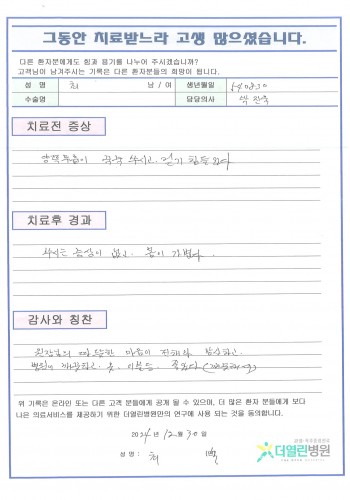 그동안 치료받느라 고생 많으셨습니다.
다른 환자분에게도 힘과 용기를 나누어 주시겠습니까?
고객님이 남겨주시는 기록은 다른 환자분들의 희망이 됩니다.
성 명 최 남 / 여 생년월일 540830
수술명 담당의사
치료전 증상
양쪽 무릎이 쑤시고 걷기 힘들었다
치료후 경과
쑤시는 증상이 없고. 몸이 가볍다.
감사와 칭찬
원장님의 따뜻한 마음이 전해와 감사하고.
병원이 깨끗하고 옷, 이불등 좋았다
위 기록은 온라인 또는 다른 고객 분들에게 공개 될 수 있으며, 더 많은 환자 분들에게 보다
나은 의료서비스를 제공하기 위한 더열린병원만의 연구에 사용 되는 것을 동의합니다.
2024년 12월 30일
성 명 : 최
더열린병원